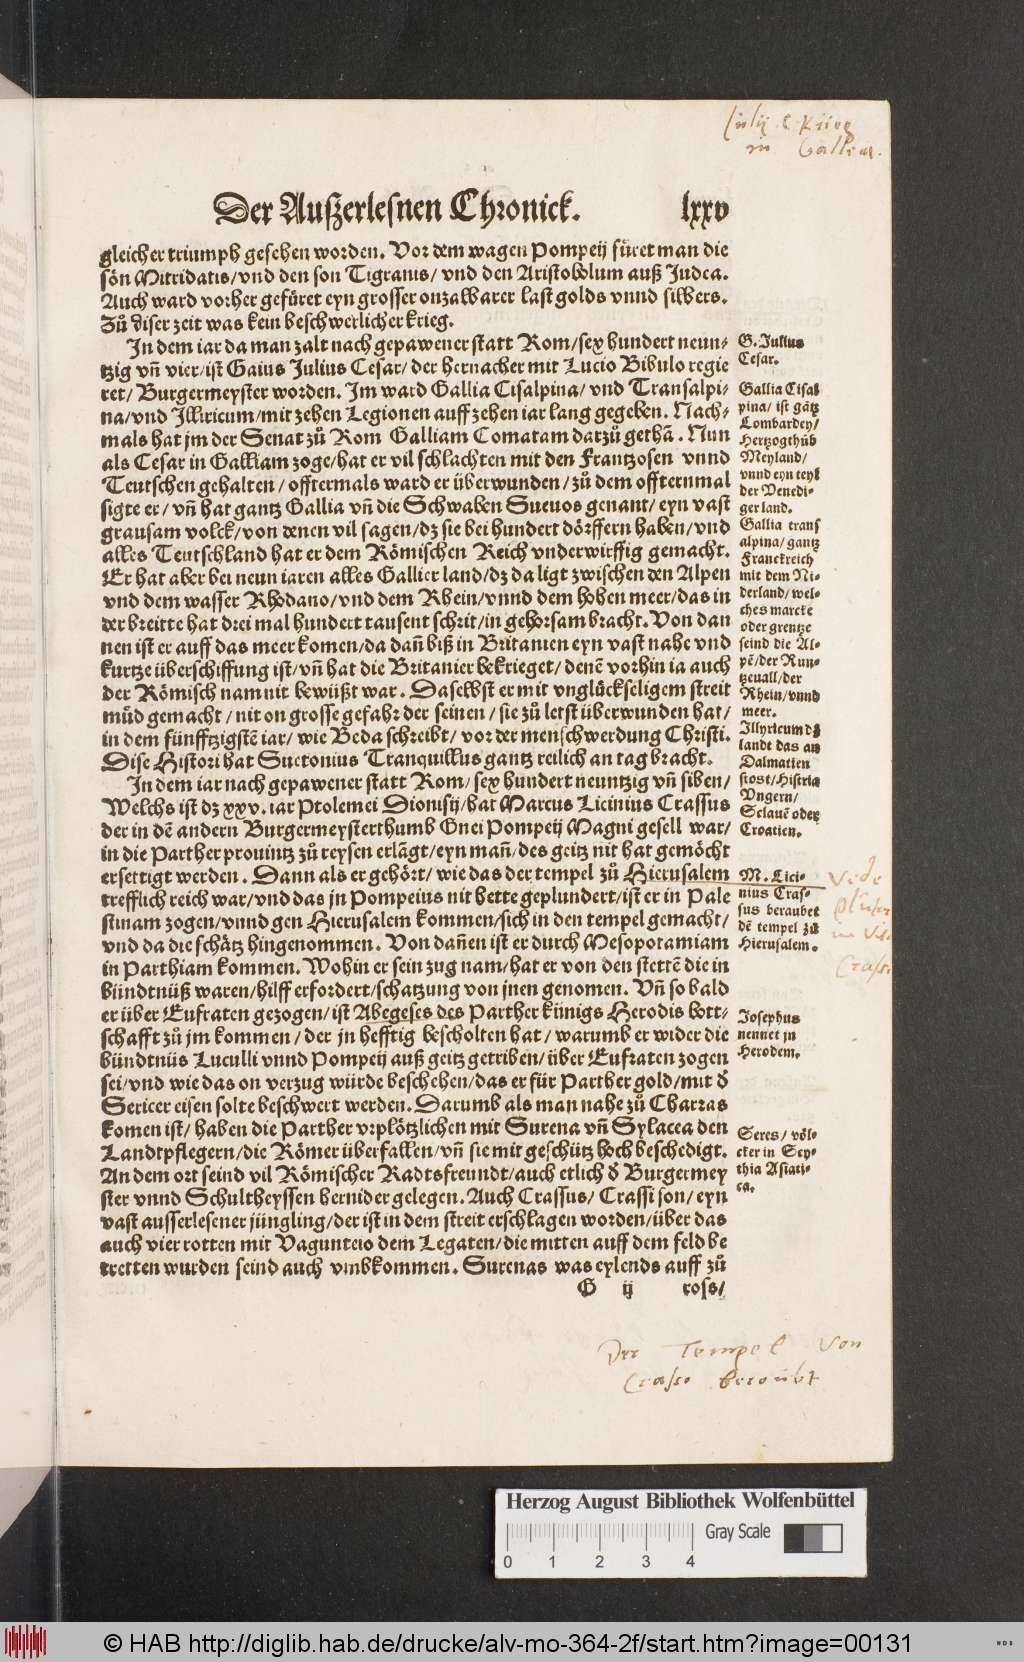 in Gallia.
Der Außerlesnen Chronick. lxxv
gleicher triumph gesehen worden. Vor dem wagen Pompeij fůret man die
sön Mitridatis/vnd den son Tigranis/ vnd den Aristobolum auß Judea.
Auch ward vorher gefüret eyn grosser onzalbarer last golds vnnd silbers.
Zů diser zeit was kein beschwerlicher krieg.
In dem iar da man zalt nach gepawener statt Rom/sex hundert neun-
tzig vñ vier/ist Gaius Julius Cesar/ der hernacher mit Lucio Bibulo regie
ret/ Burgermeyster worden. Im ward Gallia Cisalpina/ vnd Transalpi-
na/vnd Illiricum/mit zehen Legionen auff zehen iar lang gegeben. Nach-
mals hat jm der Senat zů Rom Galliam Comatam darzů gethã. Nun
als Cesar in Galliam zoge/hat er vil schlachten mit den Frantzosen vnnd
Teutschen gehalten/ offtermals ward er überwunden/ zů dem offternmal
sigte er/ vñ hat gantz Gallia vñ die Schwaben Sueuos genant/ eyn vast
grausam volck/von denen vil sagen/dz sie bei hundert dörffern haben/vnd
alles Teutschland hat er dem Römischen Reich vnderwirffig gemacht.
Er hat aber bei neun iaren alles Gallier land/dz da ligt zwischen den Alpen
vnd dem wasser Rhodano/vnd dem Rhein/vnnd dem hohen meer/das in
der breitte hat drei mal hundert tausent schrit/in gehorsam bracht. Von dan
nen ist er auff das meer komen/da dañ biß in Britanien eyn vast nahe vnd
kurtze überschiffung ist/vñ hat die Britanier bekrieget/ denẽ vorhin ia auch
der Römisch nam nit bewüßt war. Daselbst er mit vnglückseligem streit
můd gemacht/nit on grosse gefahr der seinen/ sie zů letst überwunden hat/
in dem fünfftzigstẽ iar/ wie Beda schreibt/ vor der menschwerdung Christi.
Dise Histori hat Suetonius Tranquillus gantz reilich an tag bracht.
In dem iar nach gepawener statt Rom/ sex hundert neuntzig vñ siben/
Welchs ist dz xxv. iar Ptolemei Dionisij/hat Marcus Licinius Crassus
der in dẽ andern Burgermeysterthumb Gnei Pompeij Magni gesell war/
in die Parther prouintz zů reysen erlãgt/eyn mañ/des geitz nit hat gemöcht
ersettigt werden. Dann als er gehört/ wie das der tempel zů Hierusalem
trefflich reich war/vnd das jn Pompeius nit hette geplundert/ist er in Pale
stinam zogen/vnnd gen Hierusalem kommen/sich in den tempel gemacht/
vnd da die schätz hingenommen. Von dañen ist er durch Mesopotamiam
in Parthiam kommen. Wohin er sein zug nam/hat er von den stettẽ die in
bündtnüß waren/hilff erfordert/schatzung von jnen genomen. Vñ so bald
er über Eufraten gezogen/ist Abegeses des Parther künigs Herodis bott-
schafft zů jm kommen/ der jn hefftig bescholten hat/ warumb er wider die
bündtnüs Luculli vnnd Pompeij auß geitz getriben/ über Eufraten zogen
sei/vnd wie das on verzug würde beschehen/das er für Parther gold/mit d̕
Sericer eisen solte beschwert werden. Darumb als man nahe zů Charras
komen ist/ haben die Parther vrplötzlichen mit Surena vñ Sylacea den
Landtpflegern/die Römer überfallen/vñ sie mit geschütz hoch beschedigt.
An dem ort seind vil Römischer Radtsfreundt/auch etlich d̕ Burgermey
ster vnnd Schultheyssen bernider gelegen. Auch Crassus/ Crassi son/eyn
vast ausserlesener jüngling/der ist in dem streit erschlagen worden/über das
auch vier rotten mit Vagunteio dem Legaten/die mitten auff dem feld be
tretten wurden seind auch vmbkommen. Surenas was eylends auff zů
G ij ross/
G. Julius
Cesar.
Gallia Cisal
pina/ ist gãtz
Lombardey/
Hertzogthũb
Meyland/
vnnd eyn teyl
der Venedi-
ger land.
Gallia trans
alpina/ gantz
Franckreich
mit dem Ni-
derland/ wel-
ches marcke
oder grentze
seind die Al-
pẽ/der Run-
tzeuall/der
Rhein/vnnd
meer.
Illyricum dz
landt das an
Dalmatien
stost/Histria
Vngern/
Sclauẽ oder
Croatien.
M. Lici-
nius Cras-
sus beraubet
dẽ tempel zů
Hierusalem.
Josephus
nennet jn
Herodem.
Seres/ völ-
cker in Scy-
thia Asiati-
ca.
Vide
in
Crassi
Der Tempel von
Crasso beroubt
Herzog August Bibliothek Wolfenbüttel
Gray Scale
0 1 2 3 4
© HAB http://diglib.hab.de/drucke/alv-mo-364-2f/start.htm?image=00131